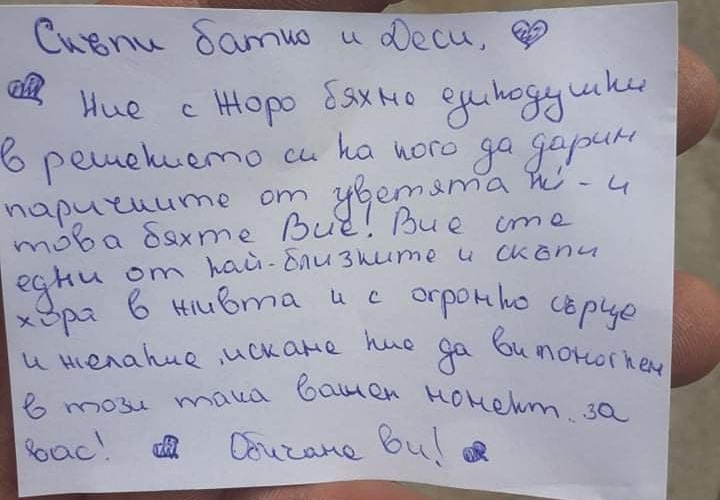 Скъпи батко и Деси,
Ние с Жоро бяхме единодушни
в решението си на кого да дарим
паричките от цветята ни - и
това бяхте Вие! Вие сте
едни от най-близките и скъпи
хора в живта и с огромно сърце
и желание, искаме ние да ви помогнем
в този така важен момент за
вас! Обичаме Ви!